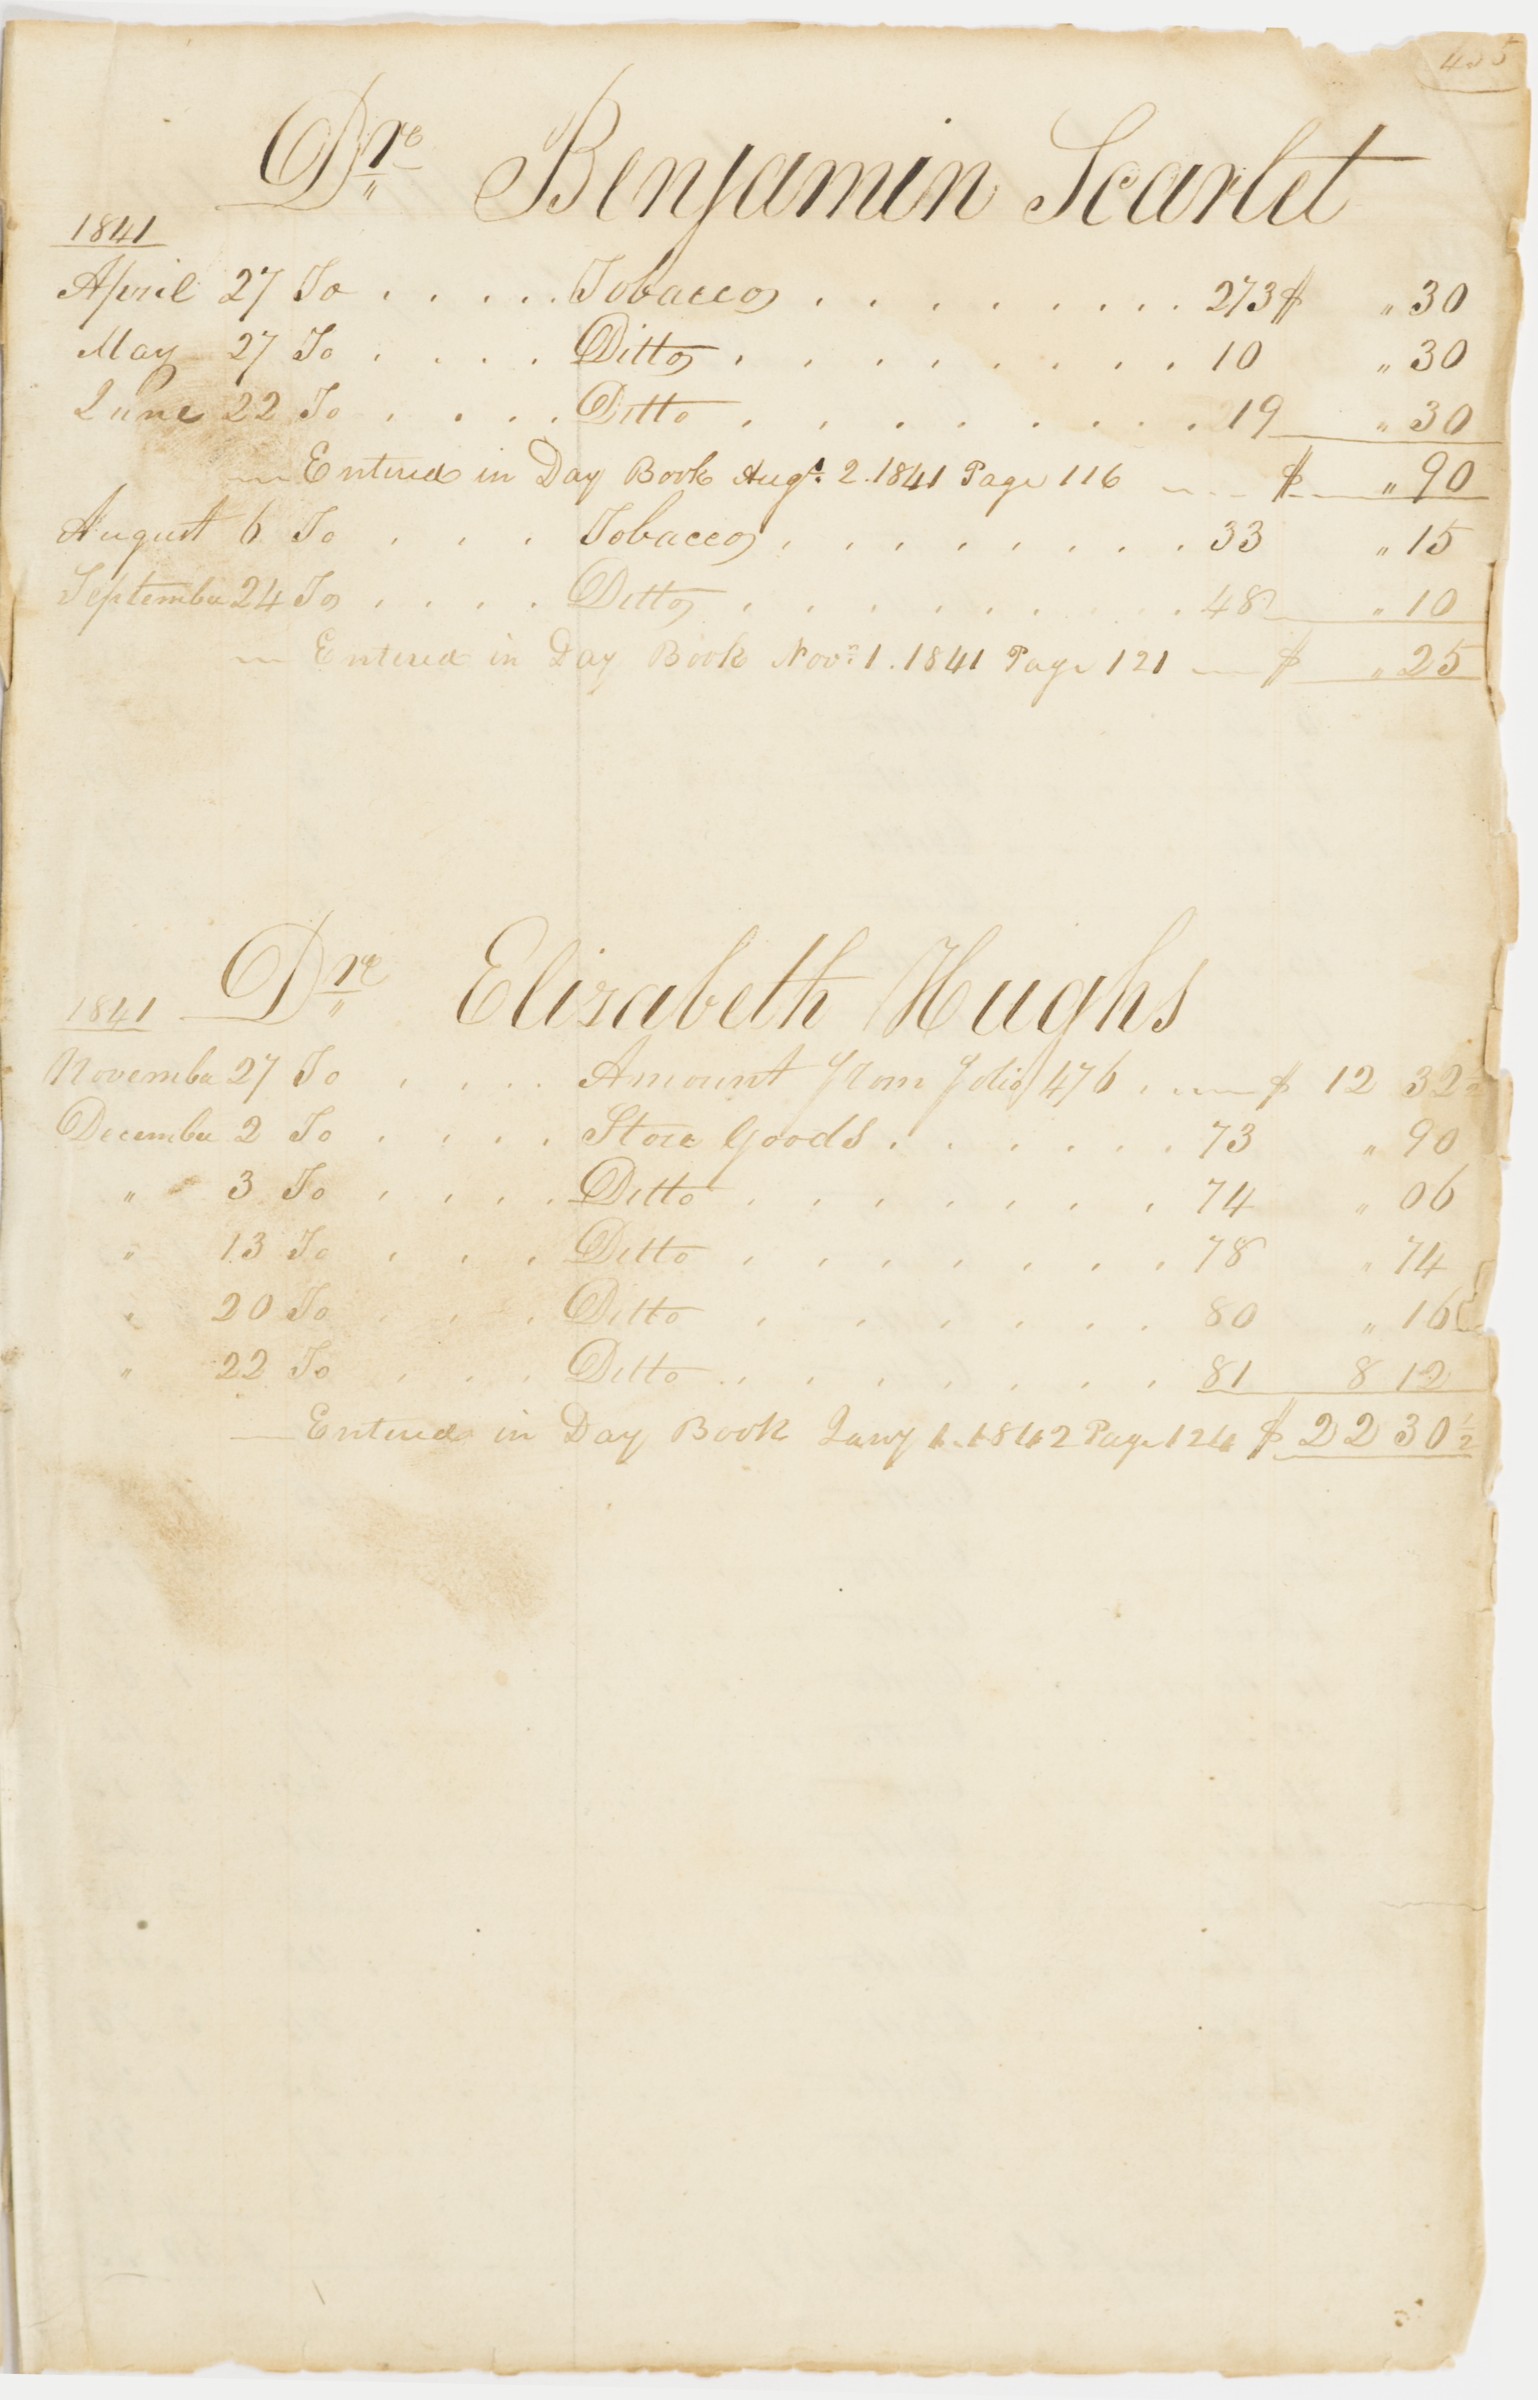 Dre Benjamin Scarlet
1841
April 27 To . . . . . Tobacco . . . . . . . . 273 $ " 30
May 27 To . . . . Ditto . . . . . . . . 10 " 30
June 22 To . . . . Ditto . . . . . . . . 19 " 30
Entered in Day Book Augt. 2. 1841 Page 116 $ " 90
August 6 To . . . Tobacco . . . . . . . . 33 " 15
September 24 To . . . . Ditto . . . . . . . . 48 " 10
Entered in Day Book Novr. 1. 1841 Page 121 $ " 25
Dre Elizabeth Hughs
1841
November 27 To . . . . Amount from folio 476 . $ 12 32½
December 2 To . . . . Store Goods . . . . . . 73 " 90
" 3 To . . . . Ditto . . . . . . . 74 " 06
" 13 To . . . Ditto . . . . . . . 78 " 74
" 20 To . . . Ditto . . . . . . 80 " 16
" 22 To . . . Ditto . . . . . . . . 81 8 12
Entered in Day Book Jany 1. 1842 Page 124 $ 22 30½